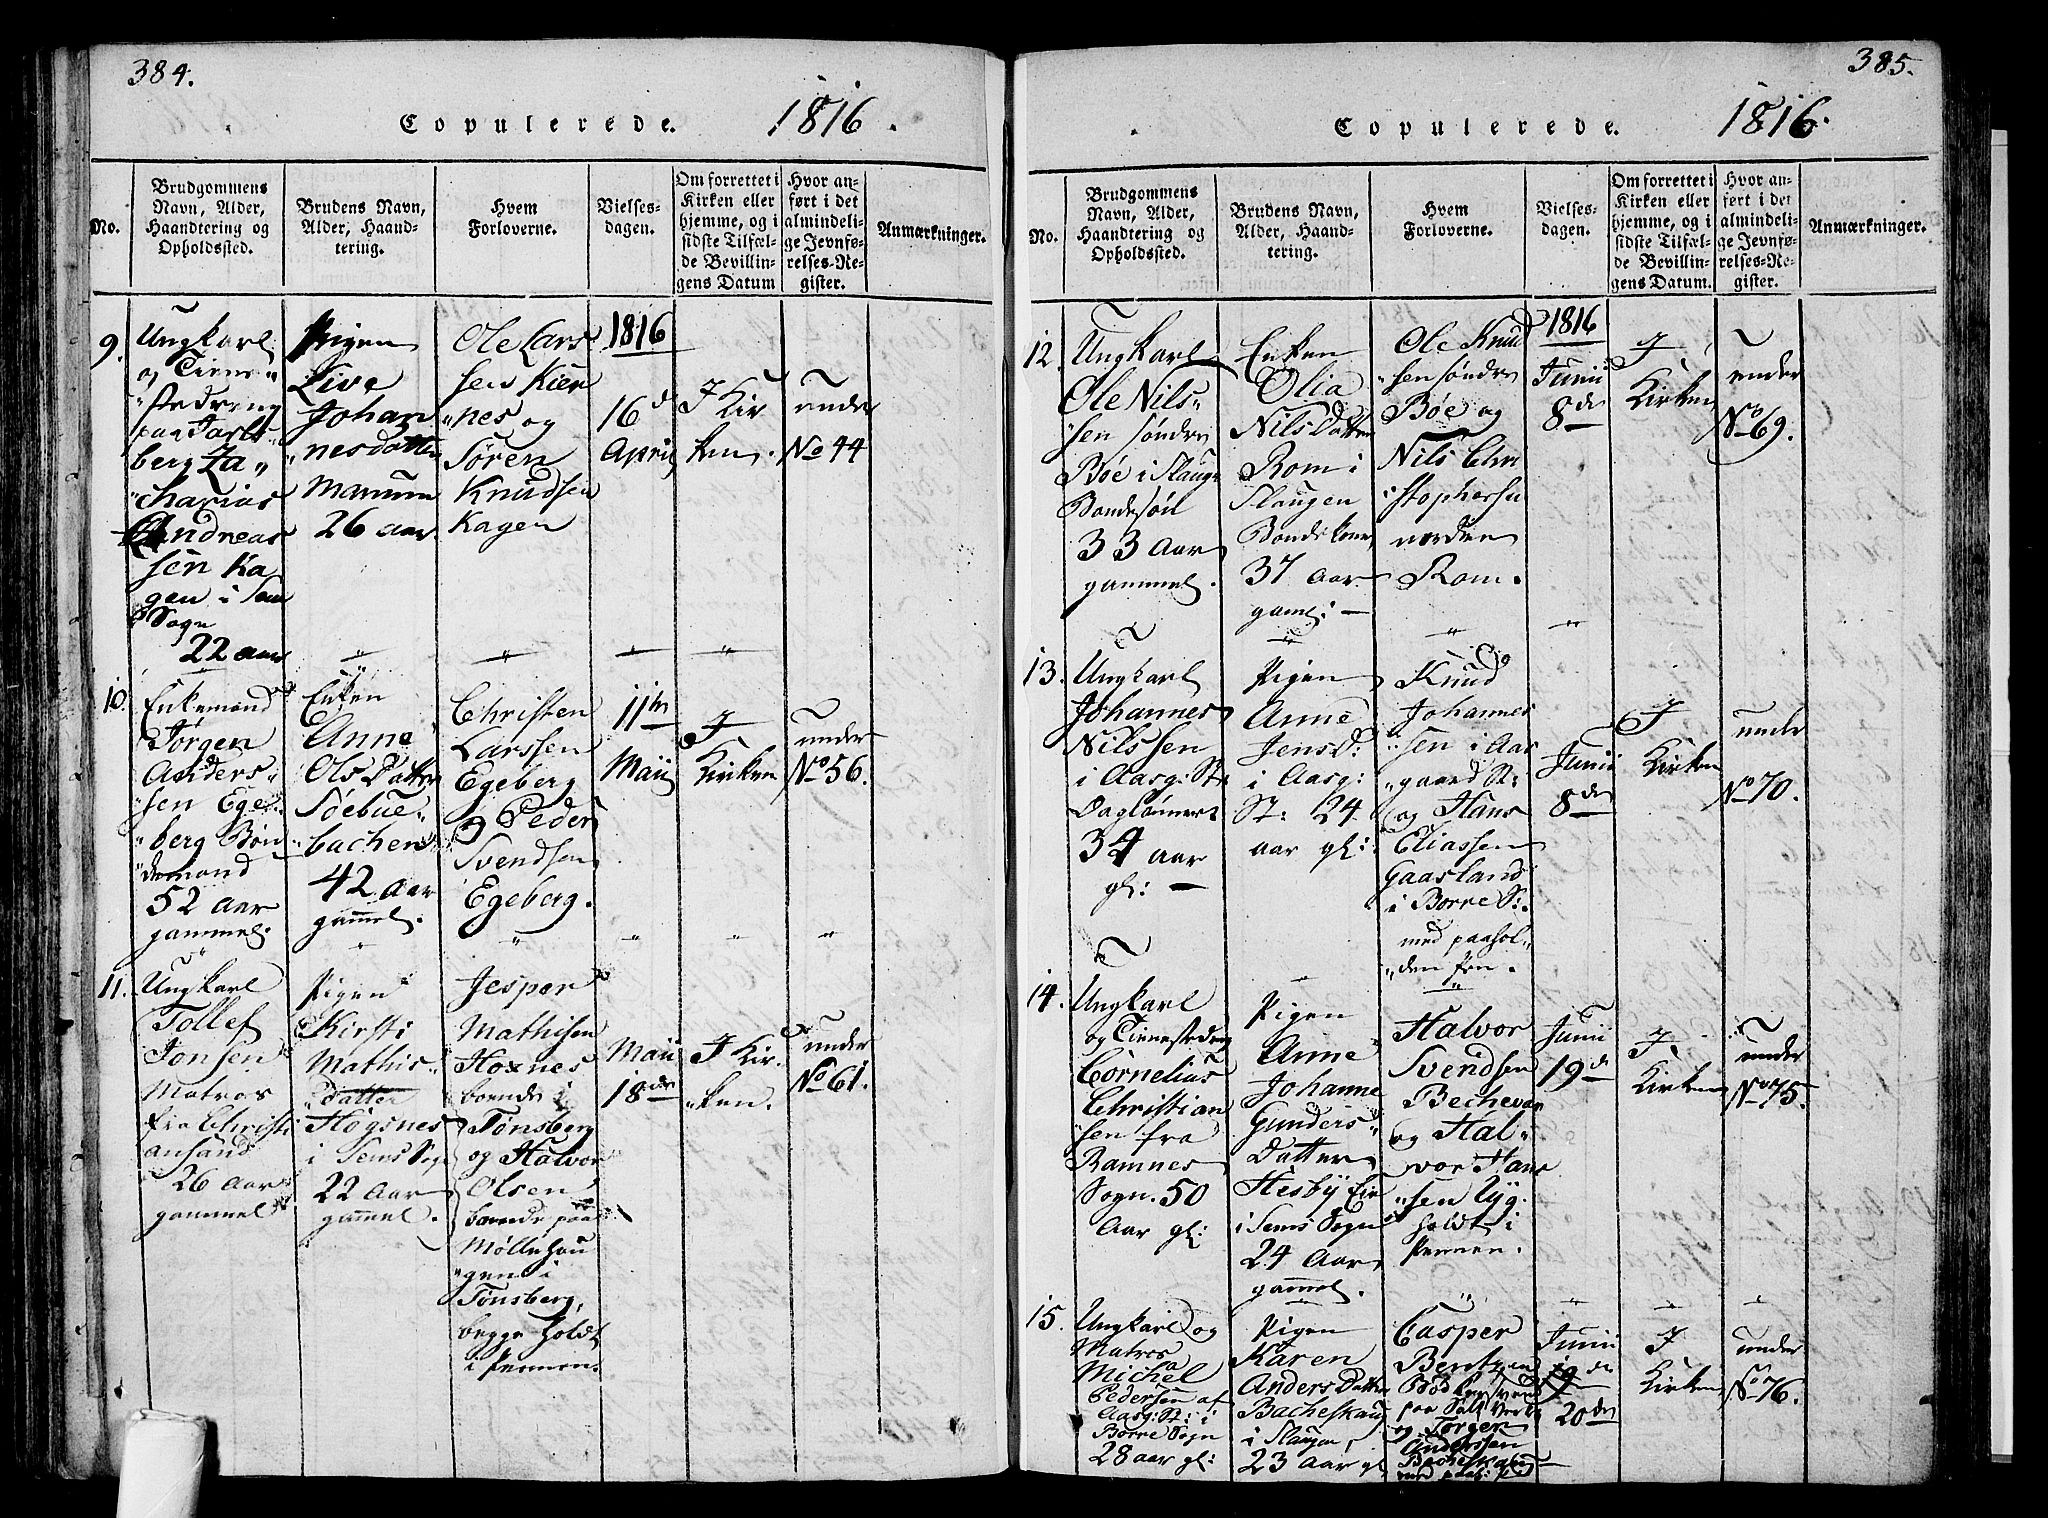 384.
Copulerede. 1816.
No.
Brudgommens
Navn, Alder,
Haandtering og
Opholdssted.
Brudens Navn,
Alder, Haand-
tering.
Hvem
Forloverne.
Vielses-
dagen.
Om forrettet i
Kirken eller
hjemme, og i
sidste Tilfæl-
de Bevillin-
gens Datum
Hvor an-
ført i det
almindeli-
ge Jevnfø-
relses-Re-
gister.
Anmærkninger.
9.
Ungkarl
og Tiene-
stedreng
paa Jarls
berg Za
charias
Andreas
sen Ka
gen i Sem
Sogn
22 aar
Pigen
Live
Johan
nesdatter
26 aar.
Ole Lars
sen Kier
nes og
Sören
Knudsen
Kagen
1816
16 d
April
I Kir
ken.
under
No 44
10.
Enkemand
Jörgen
Anders
sen Ege
berg Bon
demand
52 aar
gammel.
Enken
Anne
Ols Datter
Söebue
bachen
42 aar
gammel.
Christen
Larssen
Egeberg
og Peder
Svendsen
Egeberg.
11te
Maii
I
Kirken
under
No 56.
11.
Ungkarl
Tollef
Jonsen
Matros
fra Christi
ansand
26 aar
gammel
Pigen
Kirsti
Mathis
datter
Högsnes
i Sems Sogn
22 aar
gammel.
Jesper
Mathisen
Hoxnes
boende i
Tönsberg
og Halvor
Olsen
boende paa
Möllehou
gen i
Tönsberg,
begge holdt
i Pennen.
Maii
18de
I Kir
ken.
under
No 61.
385.
Copulerede. 1816.
No.
Brudgommens
Navn, Alder,
Haandtering og
Opholdssted.
Brudens Navn,
Alder, Haand-
tering.
Hvem
Forloverne.
Vielses-
dagen.
Om forrettet i
Kirken eller
hjemme, og i
sidste Tilfæl-
de Bevillin-
gens Datum.
Hvor an-
ført i det
almindeli-
ge Jevnfø-
relses-Re-
gister.
Anmærkninger.
12.
Ungkarl
Ole Nils
sen söndre
Böe i Slaug
Bondesön
33 aar
gammel.
Enken
Olia
Nils Datter
Rom i
Slaugen
37 aar
gaml:
Ole Knud
sen söndre
Böe og
Nils Chri
stophersen
Rom.
1816
Junii
8de
I
Kirken
under
No 69.
13.
Ungkarl
Johannes
Nilssen
i Aasg: St:
Daglönner
34 aar
gl:
Pigen
Anne
Jens D:
i Aasg:
St: 24
aar gl:
Knud
Johannes
sen i Aas
gaard St:
og Hans
Eliassen
Gaasland
i Borre S:
med paahol
den Pen.
Junii
8de
I
Kirken
under
No 70.
14.
Ungkarl
og Tienestedreng
Cornelius
Christian
sen fra
Ramnes
Sogn. 50
Aar gl:
Pigen
Anne
Johanne
Gunders
Datter
Hesby Eie
i Sems Sogn
24 Aar
gammel.
Halvor
Svendsen
og Hal
vor Hans
sen
holdt i
Pennen.
Junii
19de
I
Kirken
under
No 75.
15.
Ungkarl og
Matros
Michel
Pedersen af
Aasg: St: i
Borre Sogn
28 aar gl:
Pigen
Karen
Anders Datter
Bacheskaug
i Slaugen,
23 aar gl
Casper
Bentzen
Bödkersvend
paa Salt Verk
og Jörgen
Anderssen
Bacheskaug
Junii
20de
I
Kirken
under
No 76.